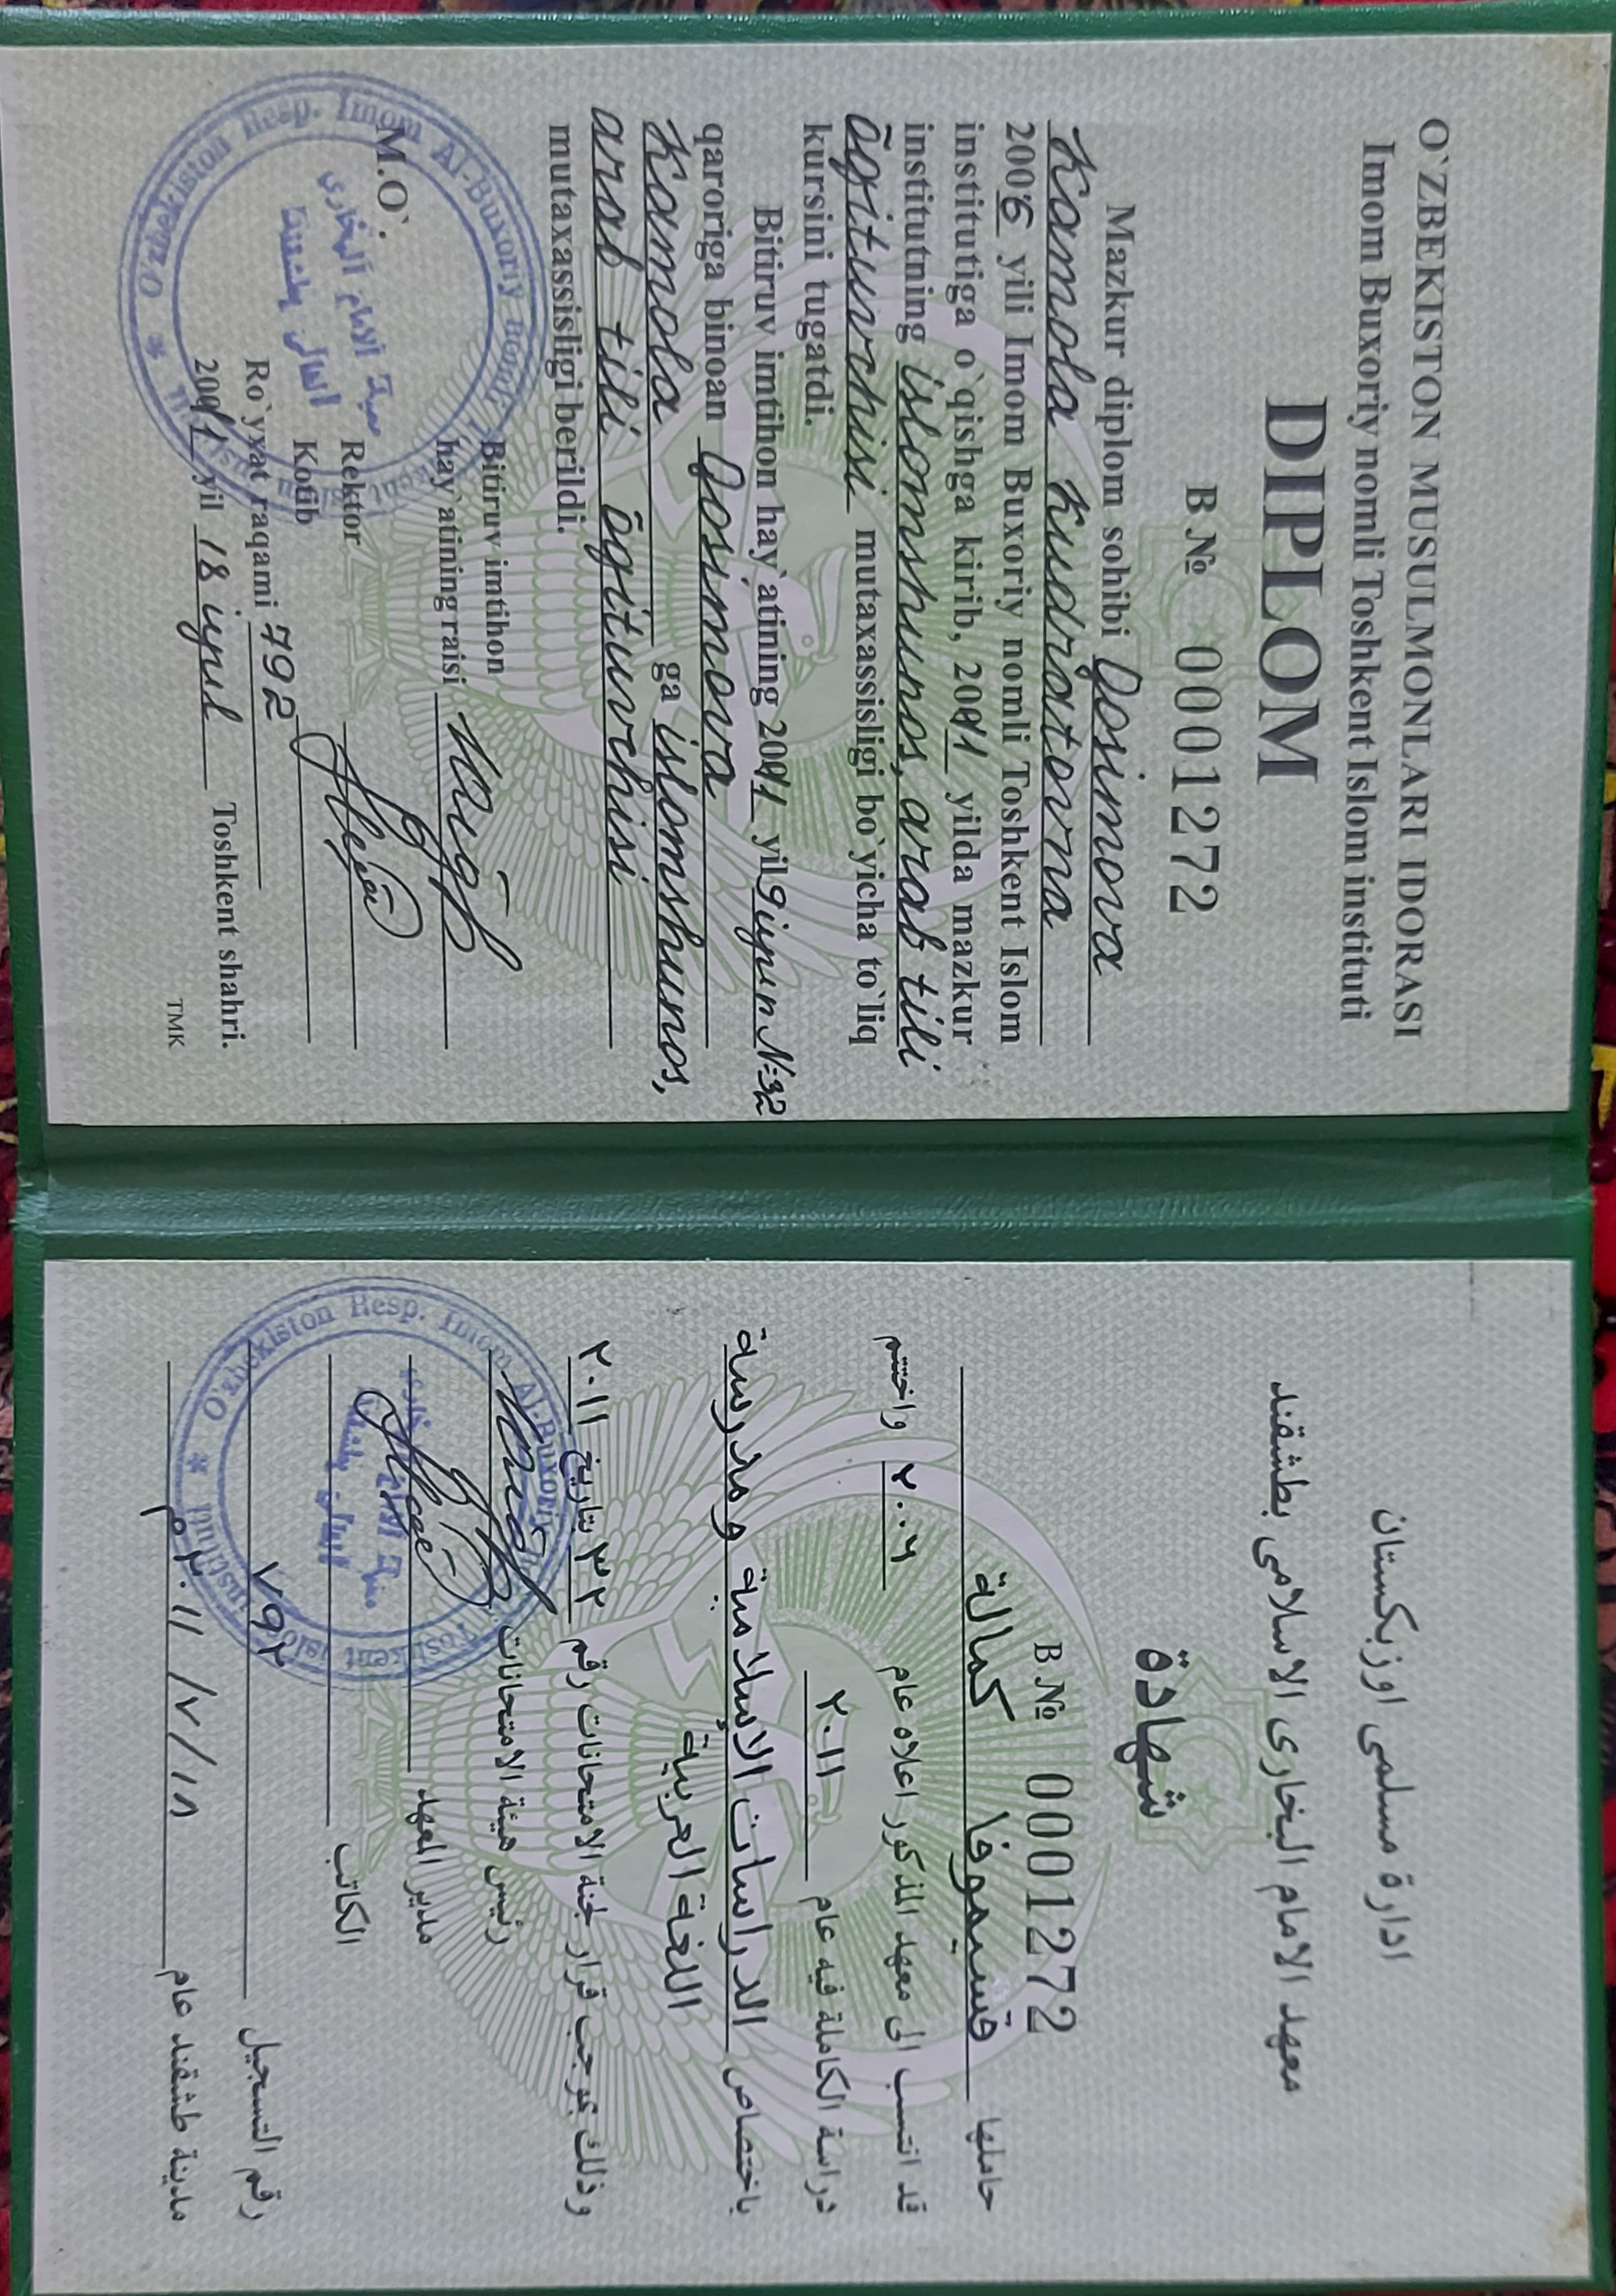 O`ZBEKISTON MUSULMONLARI IDORASI
Imom Buxoriy nomli Toshkent Islom instituti
DIPLOM
B № 0001272
Mazkur diplom sohibi Qosimova
Kamola Kudrjatovna
2006 yili Imom Buxoriy nomli Toshkent Islom
institutiga o`qishga kirib, 2011 yilda mazkur
institutning islomshunos, arab tili
ōgituvchisi mutaxassisligi bo`yicha to`liq
kursini tugatdi.
Bitiruv imtihon hay`atining 2011 yil 9 iyun №32
qaroriga binoan Qosimova
Kamola ga islomshunos,
arab tili ōgituvchisi
mutaxassisligi berildi.
Bitiruv imtihon
hay`atining raisi
M.O`.
Rektor
Kotib
Ro`yxat raqami 792
2011 yil 18 iyul Toshkent shahri.
TMK
O'zbekiston Resp. Imom Al-Buxoriy nomli
ادارة مسلمى اوزبكستان
معهد الامام البخارى الاسلامى بطشقند
شهادة
B № 0001272
حاملها قسيموفا كمالة
قد انتسب الى معهد المذكور اعلاه عام ٢٠٠٦ واختتم
دراسة الكاملة فيه عام ٢٠١١
باختصاص الدراسات الإسلامية ومدرسة
اللغة العربية
وذلك بموجب قرار لجنة الامتحانات رقم ٣٢ بتاريخ ٢٠١١
رئيس هيئة الامتحانات
مدير المعهد
الكاتب
رقم التسجيل ٧٩٢
مدينة طشقند عام ١٨/٧/٢٠١١م
O'zbekiston Resp. Imom Al-Buxoriy